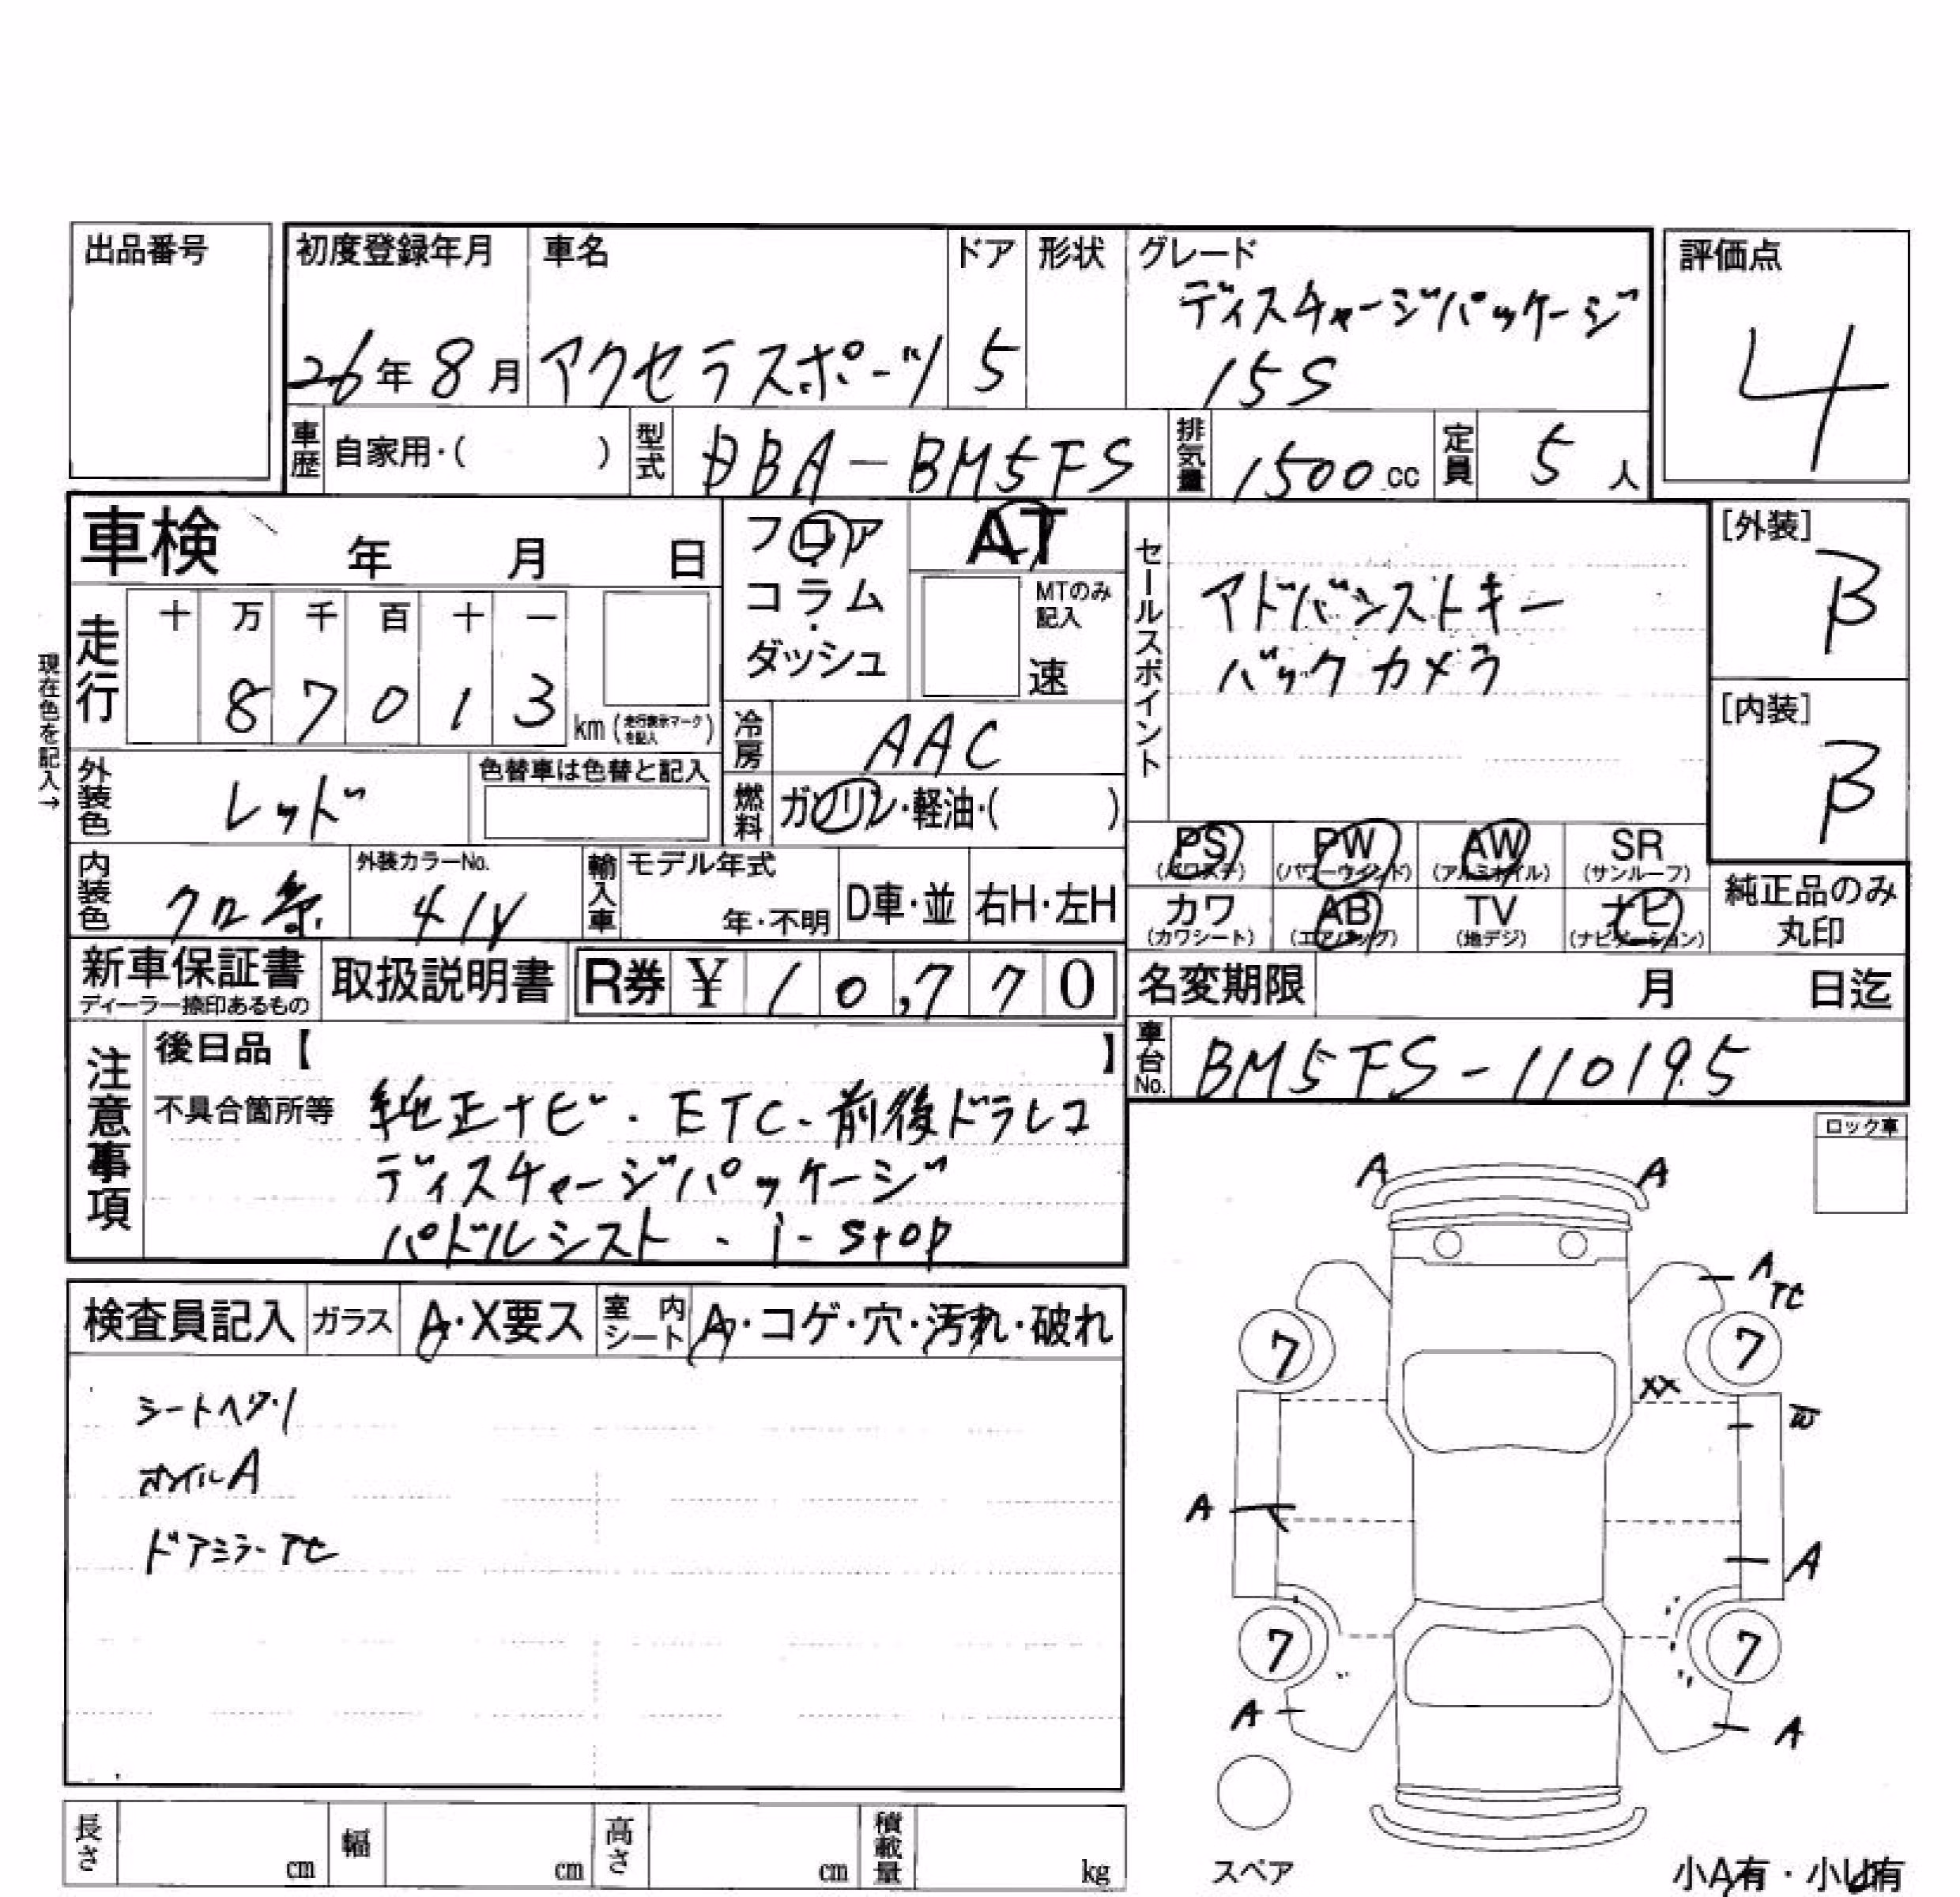 出品番号
初度登録年月 車名 ドア 形状 グレード 評価点
ディスチャージパッケージ
26年8月 アクセラスポーツ 5 15S
4
車歴 自家用・( ) 型式 DBA-BM5FS 排気量 1500cc 定員 5人
車検 年 月 日
フロア AT
コラム・ダッシュ
MTのみ記入
速
セールスポイント
アドバンストキー
バックカメラ
[外装] B
[内装] B
走行 十 万 千 百 十 一
8 7 0 1 3 km (走行表示マークを記入)
現在色を記入→
冷房 AAC
外装色 レッド 色替車は色替と記入
燃料 ガソリン・軽油・( )
内装色 クロ系 外装カラーNo. 41V
輸入車 モデル年式 年・不明 D車・並 右H・左H
PS (パワステ) PW (パワーウィンド) AW (アルミホイル) SR (サンルーフ)
カワ (カワシート) AB (エアバッグ) TV (地デジ) ナビ (ナビゲーション)
純正品のみ丸印
新車保証書 ディーラー捺印あるもの 取扱説明書 R券 ¥ 10,770
名変期限 月 日迄
車台No. BM5FS-110195
注意事項
後日品【 】
不具合箇所等 純正ナビ・ETC・前後ドラレコ
ディスチャージパッケージ
パドルシフト・i-stop
ロック車
検査員記入 ガラス A・X要ス 室内シート A・コゲ・穴・汚れ・破れ
シートヘタリ
ホイルA
ドアミラーTC
A A
A
TC
7 7
XX
W
A
A
7 7
A A
スペア
長さ cm 幅 cm 高さ cm 積載量 kg
小A有・小U有